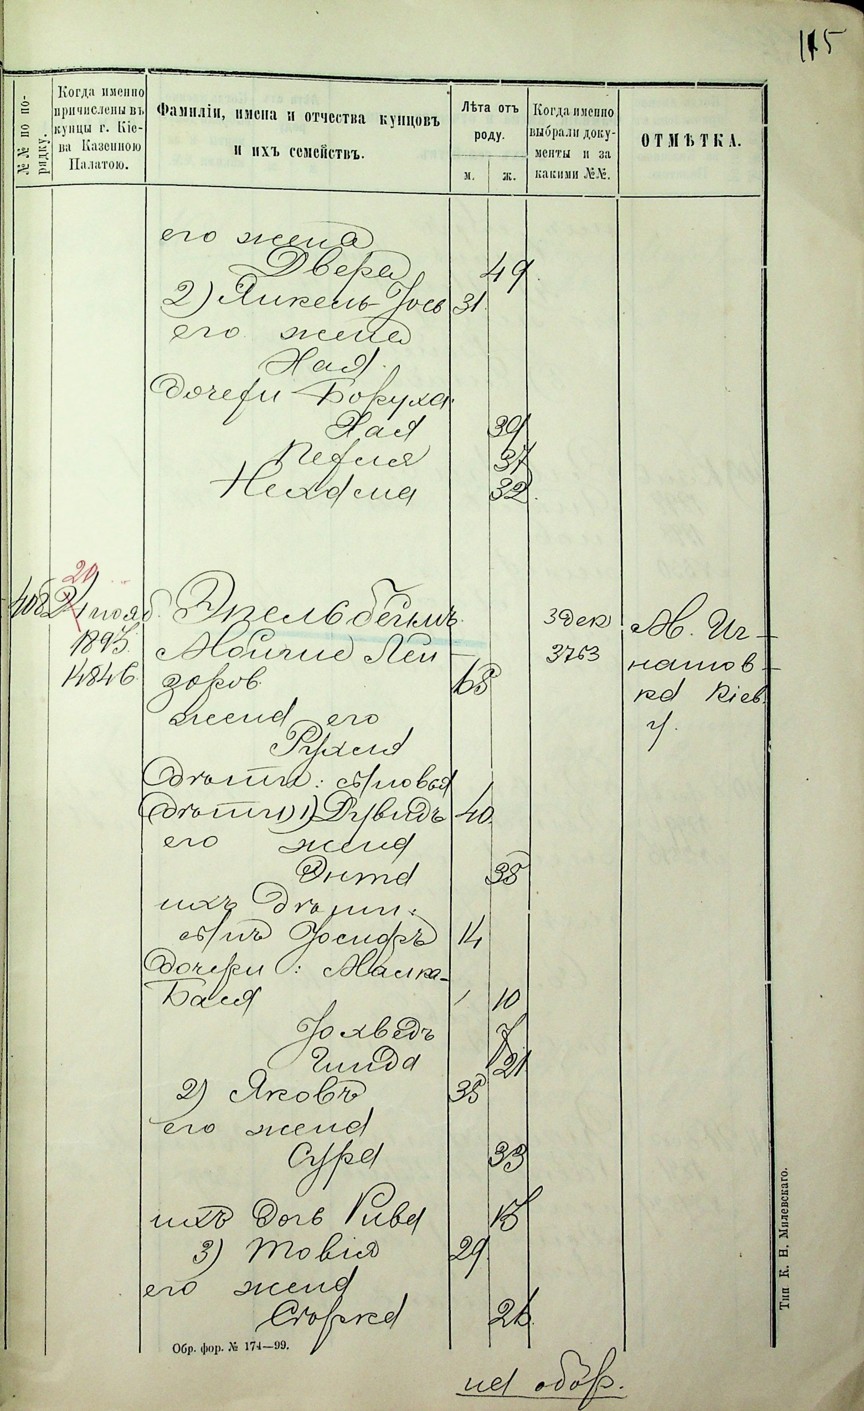 115
№№ по по-
рядку.
Когда именно
причислены въ
купцы г. Кіе-
ва Казенною
Палатою.
Фамиліи, имена и отчества купцовъ
и ихъ семействъ.
Лѣта отъ
роду.
м. ж.
Когда именно
выбрали доку-
менты и за
какими №№.
ОТМѢТКА.
его жена
Двера 49
2) Янкель-Іось 31
его жена
Хая
дочери Боруха
Хая 39
Перля 37
Нехама 32
20
408 21 нояб. Эпельбеймъ 3 дек
1895 Мойше Лей- 3753 М. Иг-
14846 зоровъ 68 натов-
жена его ка Кіев.
Рухля у.
дѣти: сыновья
дѣти 1) Дувидъ 40
его жена
Энта 38
ихъ дѣти:
сынъ Іосифъ 14
дочери: Малка-
Бася 10
Іохведъ 7
Гинда 21
2) Яковъ 35
его жена
Сура 33
ихъ дочь Рива 13
3) Товія 29
его жена
Сорка 26
Обр. фор. № 174—99.
на обор.
Тип К. Н. Милевскаго.